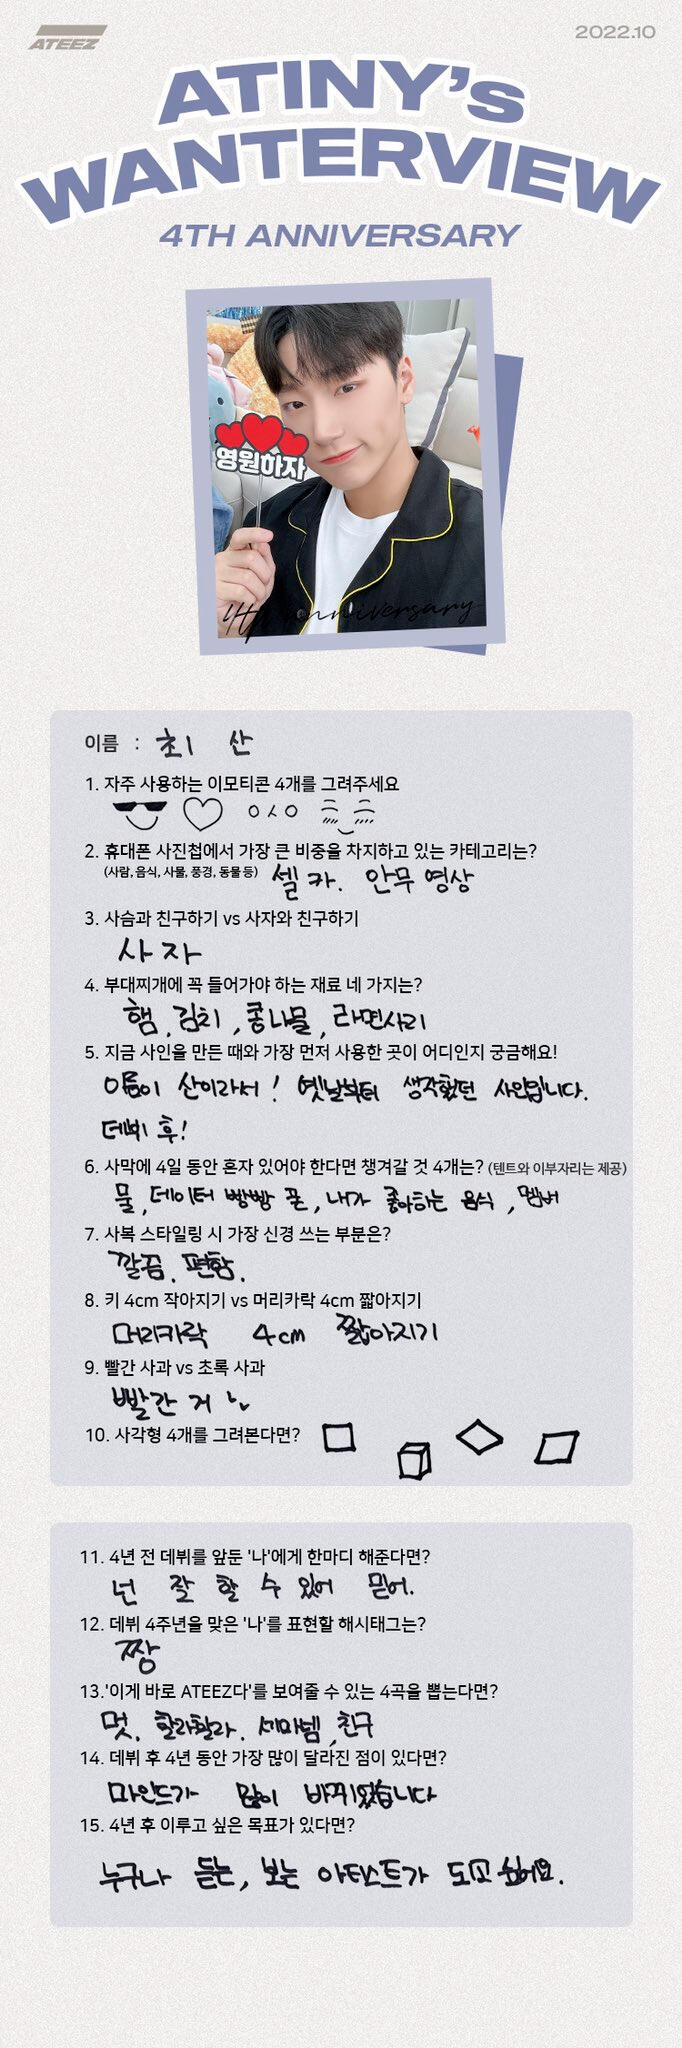 ATEEZ
2022.10
ATINY's
WANTERVIEW
4TH ANNIVERSARY
영원하자
4th anniversary
이름 : 최 산
1. 자주 사용하는 이모티콘 4개를 그려주세요
ㅇㅅㅇ
2. 휴대폰 사진첩에서 가장 큰 비중을 차지하고 있는 카테고리는?
(사람, 음식, 사물, 풍경, 동물 등) 셀카. 안무 영상
3. 사슴과 친구하기 vs 사자와 친구하기
사자
4. 부대찌개에 꼭 들어가야 하는 재료 네 가지는?
햄, 김치, 콩나물, 라면사리
5. 지금 사인을 만든 때와 가장 먼저 사용한 곳이 어디인지 궁금해요!
이름이 산이라서! 옛날부터 생각했던 사인입니다.
데뷔 후!
6. 사막에 4일 동안 혼자 있어야 한다면 챙겨갈 것 4개는? (텐트와 이부자리는 제공)
물, 데이터 빵빵 폰, 내가 좋아하는 음식, 멤버
7. 사복 스타일링 시 가장 신경 쓰는 부분은?
깔끔. 편함.
8. 키 4cm 작아지기 vs 머리카락 4cm 짧아지기
머리카락 4cm 짧아지기
9. 빨간 사과 vs 초록 사과
빨간 거
10. 사각형 4개를 그려본다면?
11. 4년 전 데뷔를 앞둔 '나'에게 한마디 해준다면?
넌 잘 할 수 있어 믿어.
12. 데뷔 4주년을 맞은 '나'를 표현할 해시태그는?
짱
13.'이게 바로 ATEEZ다'를 보여줄 수 있는 4곡을 뽑는다면?
멋. 할라할라. 세마넴, 친구
14. 데뷔 후 4년 동안 가장 많이 달라진 점이 있다면?
마인드가 많이 바뀌었습니다
15. 4년 후 이루고 싶은 목표가 있다면?
누구나 듣는, 보는 아티스트가 되고 싶어요.